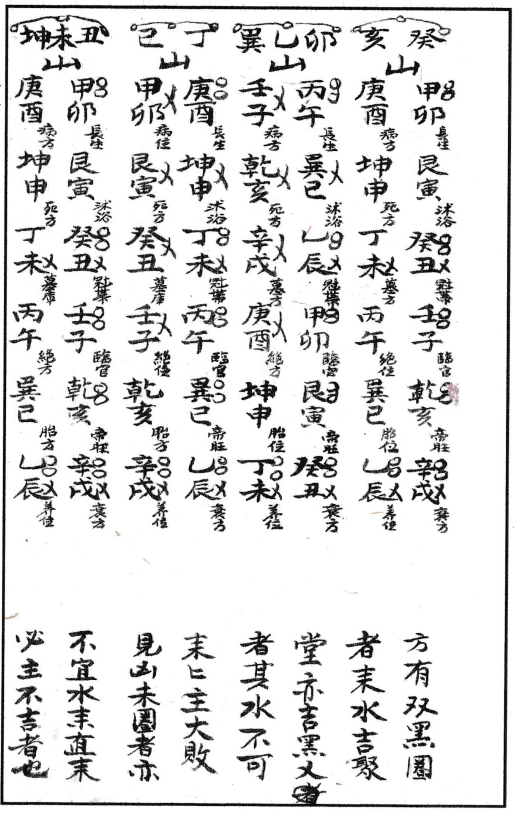 癸亥山
甲卯長生艮寅沐浴癸丑冠帶壬子臨官乾亥帝旺辛戌衰方
庚酉病方坤申死方丁未墓方丙午絕位巽巳胎位乙辰养位
卯乙巽山
丙午長生巽巳沐浴乙辰冠帶甲卯臨官艮寅帝旺癸丑衰方
壬子病方乾亥死方辛戌墓方庚酉絕方坤申胎位丁未养位
丁巳山
庚酉長生坤申沐浴丁未冠帶丙午臨官巽巳帝旺乙辰衰方
甲卯病位艮寅死方癸丑墓庫壬子絕位乾亥胎方辛戌养位
丑未坤山
甲卯長生艮寅沐浴癸丑冠帶壬子臨官乾亥帝旺辛戌衰方
庚酉病方坤申死方丁未墓庫丙午絕方巽巳胎方乙辰养位
方有双黑圈
者耒水吉聚
堂亦吉黑乂
者其水不可
耒匕主大敗
見凶未圈者亦
不宜水耒直耒
必主不吉者也